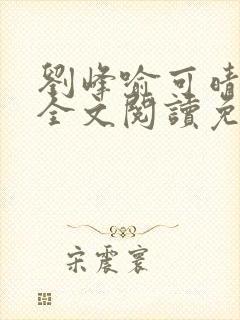 劉峰喻可晴
全文閱讀免
宋震寰